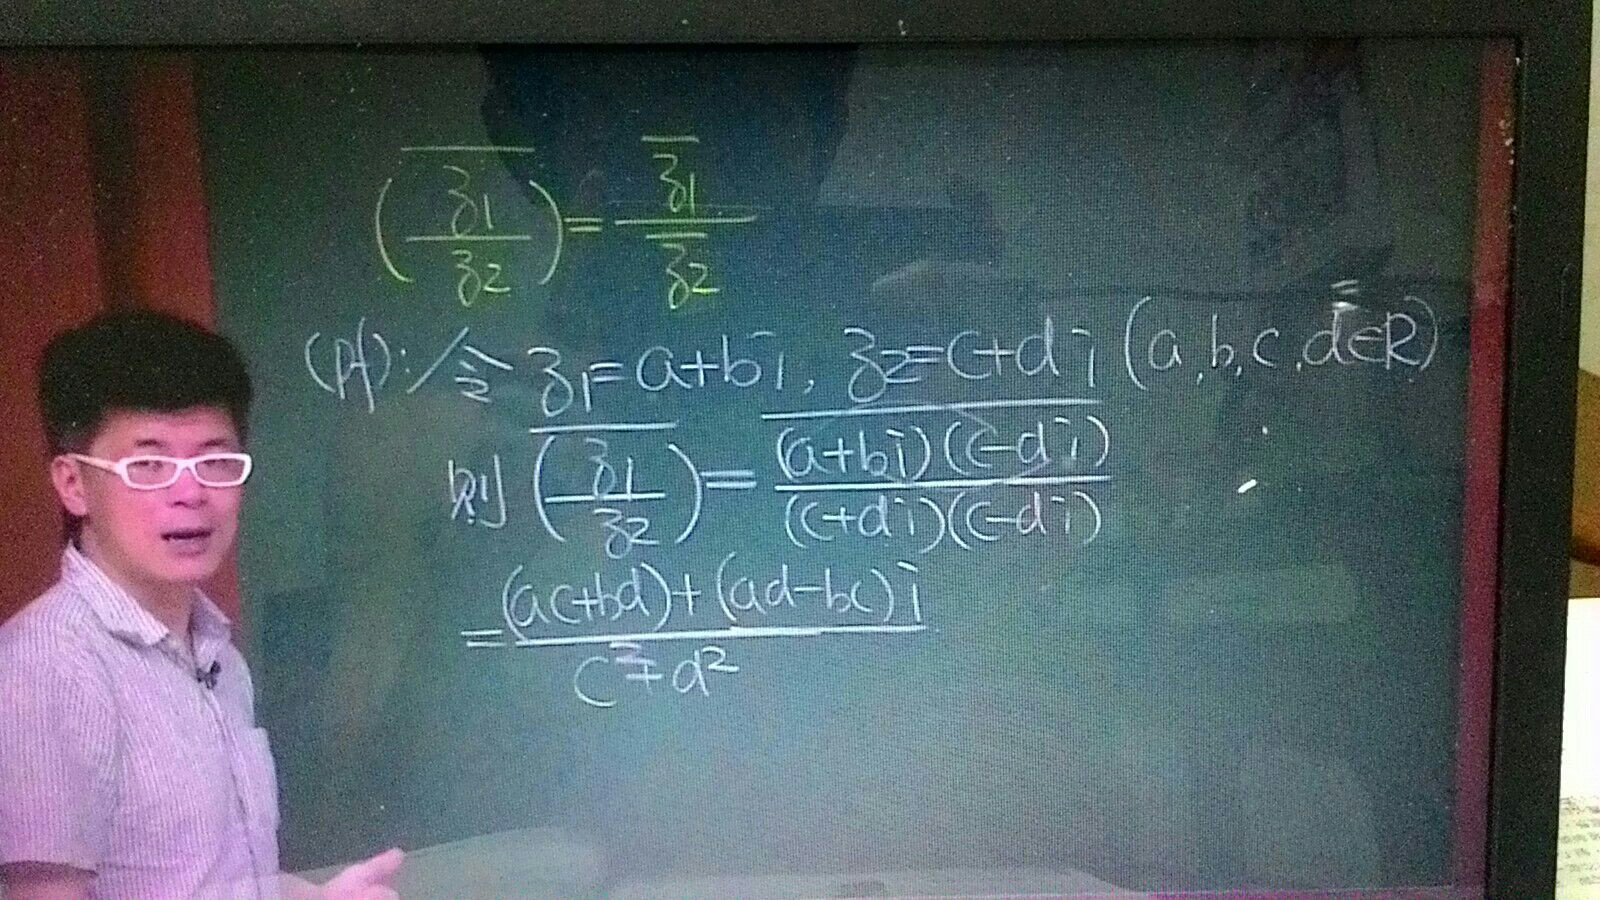 $\overline{\left(\frac{z_1}{z_2}\right)}=\frac{\overline{z_1}}{\overline{z_2}}$
(pf):令 $z_1=a+bi, z_2=c+di (a,b,c,d\in R)$
則 $\overline{\left(\frac{z_1}{z_2}\right)}=\overline{\frac{(a+bi)(c-di)}{(c+di)(c-di)}}$
$=\frac{(ac+bd)+(ad-bc)i}{c^2+d^2}$